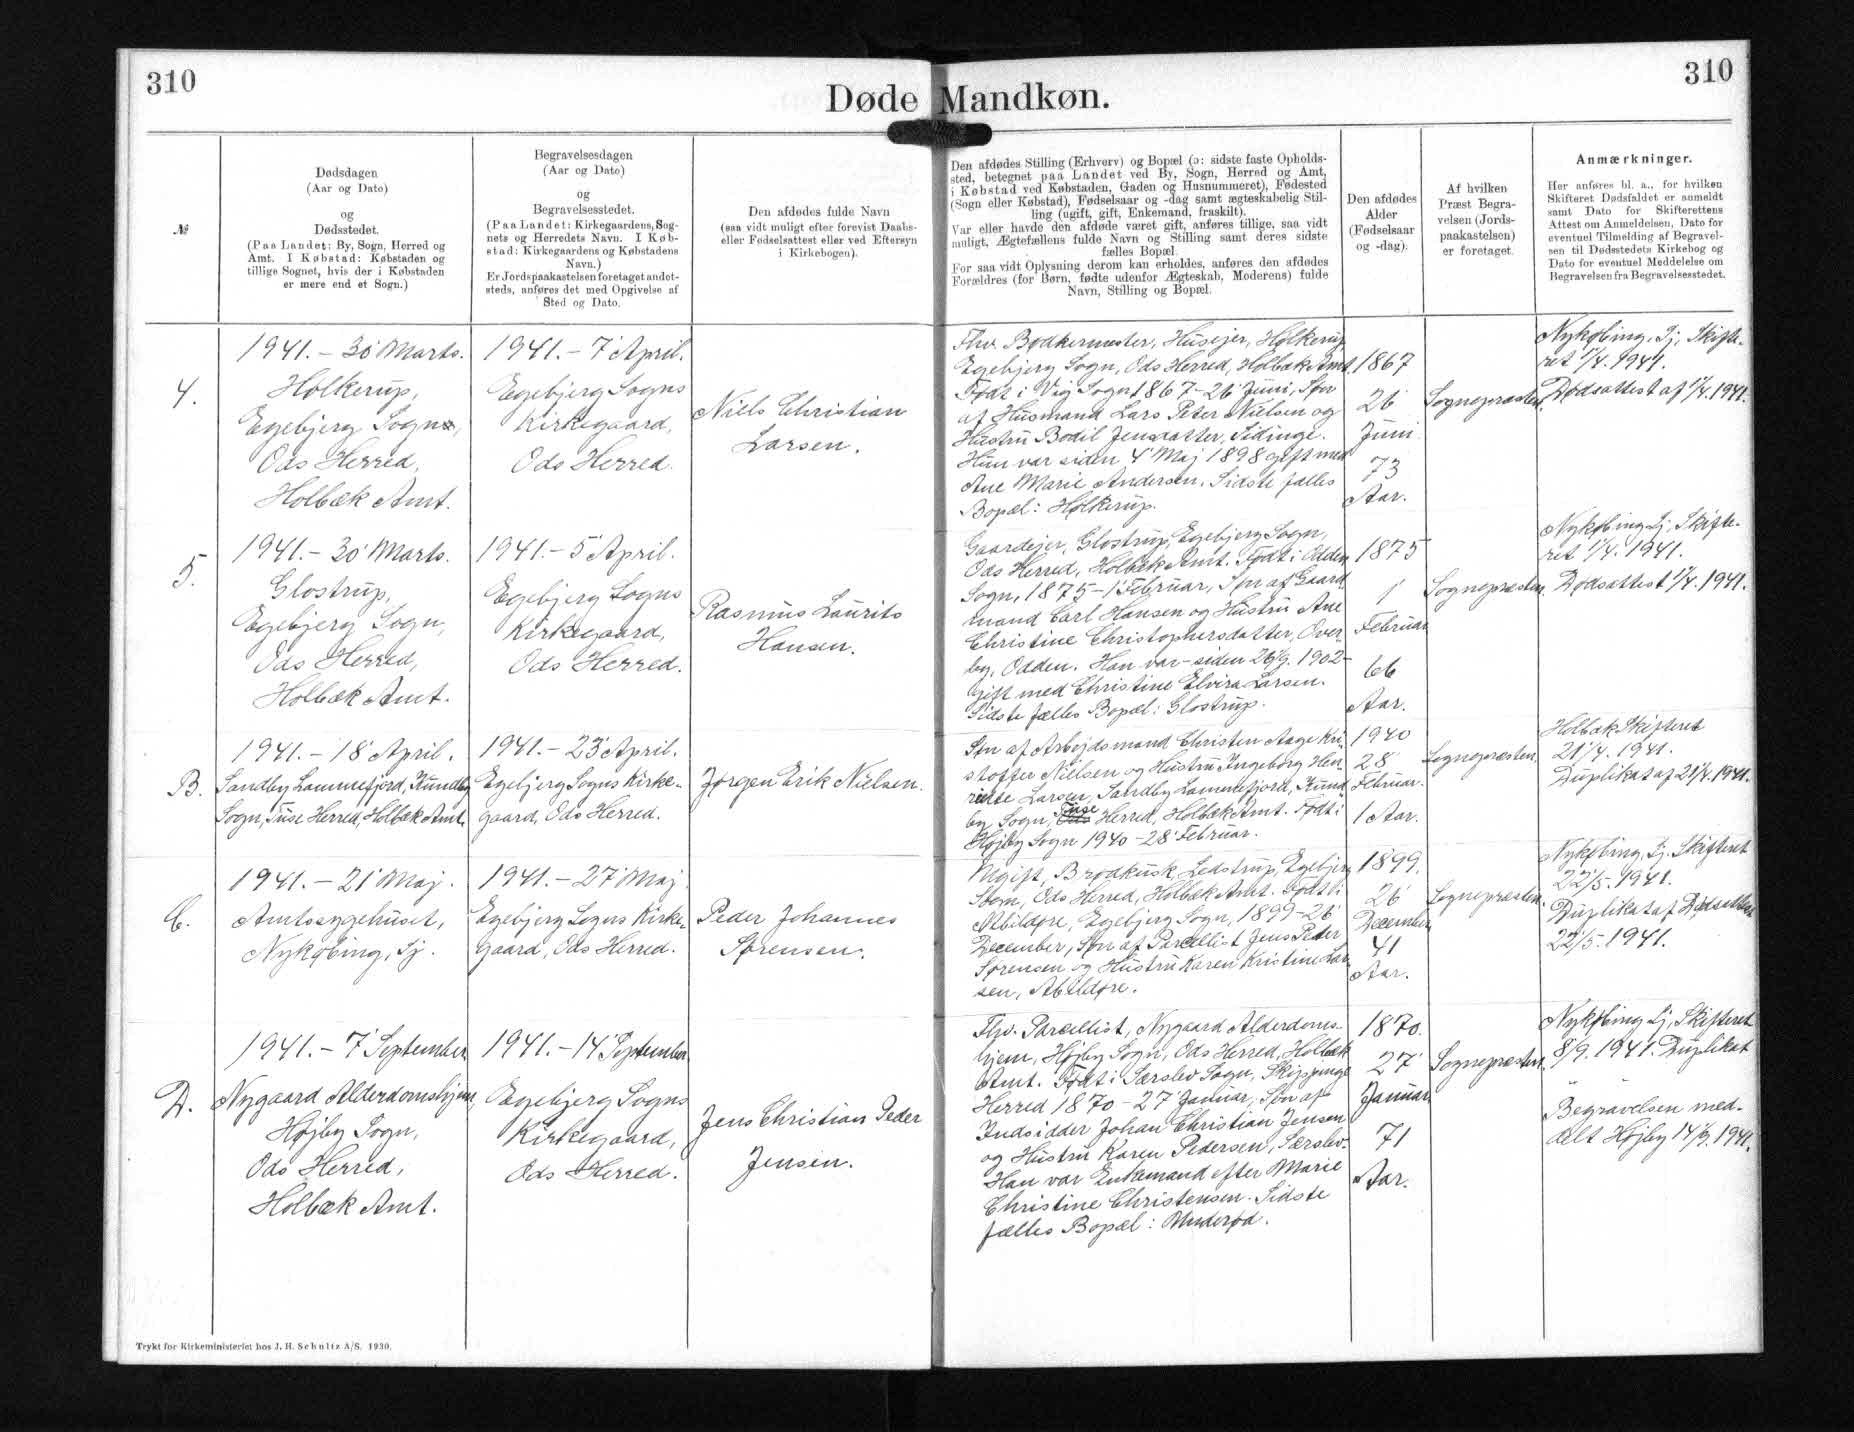 310
310
Døde Mandkøn.
№
Dødsdagen
(Aar og Dato)
og
Dødsstedet.
(Paa Landet: By, Sogn, Herred og
Amt. I Købstad: Købstaden og
tillige Sognet, hvis der i Købstaden
er mere end et Sogn.)
Begravelsesdagen
(Aar og Dato)
og
Begravelsesstedet.
(Paa Landet: Kirkegaardens, Sog-
nets og Herredets Navn. I Køb-
stad: Kirkegaardens og Købstadens
Navn.)
Er Jordspaakastelsen foretaget andet-
steds, anføres det med Opgivelse af
Sted og Dato.
Den afdødes fulde Navn
(saa vidt muligt efter forevist Daabs-
eller Fødselsattest eller ved Eftersyn
i Kirkebogen).
Den afdødes Stilling (Erhverv) og Bopæl (ɔ: sidste faste Opholds-
sted, betegnet paa Landet ved By, Sogn, Herred og Amt,
i Købstad ved Købstaden, Gaden og Husnummeret), Fødested
(Sogn eller Købstad), Fødselsaar og -dag samt ægteskabelig Stil-
ling (ugift, gift, Enkemand, fraskilt).
Var eller havde den afdøde været gift, anføres tillige, saa vidt
muligt, Ægtefællens fulde Navn og Stilling samt deres sidste
fælles Bopæl.
For saa vidt Oplysning derom kan erholdes, anføres den afdødes
Forældres (for Børn, fødte udenfor Ægteskab, Moderens) fulde
Navn, Stilling og Bopæl.
Den afdødes
Alder
(Fødselsaar
og -dag).
Af hvilken
Præst Begra-
velsen (Jords-
paakastelsen)
er foretaget.
Anmærkninger.
Her anføres bl. a., for hvilken
Skifteret Dødsfaldet er anmeldt
samt Dato for Skifterettens
Attest om Anmeldelsen, Dato for
eventuel Tilmelding af Begravel-
sen til Dødsstedets Kirkebog og
Dato for eventuel Meddelelse om
Begravelsen fra Begravelsesstedet.
4.
1941. - 30' Marts.
Holkerup,
Egebjerg Sogn,
Ods Herred,
Holbæk Amt.
1941. - 7' April.
Egebjerg Sogns
Kirkegaard,
Ods Herred.
Niels Christian
Larsen.
Fhv. Bødkermester, Husejer, Holkerup
Egebjerg Sogn, Ods Herred, Holbæk Amt.
Født i Vig Sogn 1867 - 26' Juni, Søn
af Husmand Lars Peter Nielsen og
Hustru Bodil Jensdatter, Sidinge.
Han var siden 4' Maj 1898 gift med
Ane Marie Andersen. Sidste fælles
Bopæl: Holkerup.
1867
26'
Juni
73
Aar.
Sognepræsten.
Nykøbing, Sj, Skifte-
ret 1/4. 1941.
Dødsattest af 1/4. 1941.
5.
1941. - 30' Marts.
Glostrup,
Egebjerg Sogn,
Ods Herred,
Holbæk Amt.
1941. - 5' April.
Egebjerg Sogns
Kirkegaard,
Ods Herred.
Rasmus Laurits
Hansen.
Gaardejer, Glostrup, Egebjerg Sogn,
Ods Herred, Holbæk Amt. Født i Odden
Sogn, 1875 - 1' Februar, Søn af Gaard-
mand Carl Hansen og Hustru Ane
Christine Christophersdatter, Over-
by, Odden. Han var - siden 26/9. 1902 -
gift med Christine Elvira Larsen.
Sidste fælles Bopæl: Glostrup.
1875
1'
Februar
66
Aar.
Sognepræsten.
Nykøbing Sj. Skifte-
ret 1/4. 1941.
Dødsattest 1/4. 1941.
B.
1941. - 18' April.
Sandby Lammefjord, Kundby
Sogn, Tuse Herred, Holbæk Amt.
1941. - 23' April.
Egebjerg Sogns Kirke-
gaard, Ods Herred.
Jørgen Erik Nielsen.
Søn af Arbejdsmand Christen Aage Kri-
stoffer Nielsen og Hustru Ingeborg Hen-
riette Larsen, Sandby Lammefjord, Kund-
by Sogn, Tuse Herred, Holbæk Amt. Født i
Højby Sogn 1940 - 28' Februar.
1940
28'
Februar.
1 Aar.
Sognepræsten.
Holbæk Skifteret
21/4. 1941.
Duplikat af 21/4. 1941.
C.
1941. - 21' Maj.
Amtssygehuset,
Nykøbing, Sj.
1941. - 27' Maj
Egebjerg Sogns Kirke-
gaard, Ods Herred.
Peder Johannes
Sørensen.
Ugift, Brødkusk, Ledstrup, Egebjerg
Sogn, Ods Herred, Holbæk Amt. Født i
Abildøre, Egebjerg Sogn, 1899 - 26'
December, Søn af Parcellist Jens Peder
Sørensen og Hustru Karen Kristine Lar-
sen, Abildøre.
1899.
26'
December
41
Aar.
Sognepræsten.
Nykøbing, Sj. Skifteret
22/5. 1941.
Duplikat af Dødsattest
22/5. 1941.
D.
1941. - 7' September
Nygaard Alderdomshjem,
Højby Sogn,
Ods Herred,
Holbæk Amt.
1941. - 14' September
Egebjerg Sogns
Kirkegaard,
Ods Herred.
Jens Christian Peder
Jensen.
Fhv. Parcellist, Nygaard Alderdoms-
hjem, Højby Sogn, Ods Herred, Holbæk
Amt. Født i Særslev Sogn, Skippinge
Herred 1870 - 27' Januar, Søn af
Indsidder Johan Christian Jensen
og Hustru Karen Pedersen, Særslev.
Han var Enkemand efter Marie
Christine Christensen. Sidste
fælles Bopæl:
1870.
27'
Januar
71
Aar.
Sognepræsten.
Nykøbing Sj, Skifteret
8/9. 1941. Duplikat
" "
Begravelsen med-
delt Højby 14/9. 1941.
Trykt for Kirkeministeriet hos J. H. Schultz A/S. 1930.